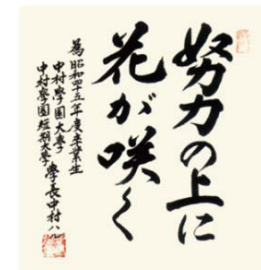 努力の上に
花が咲く
為昭和四十五年度卒業生
中村學園大學
中村學園短期大學
學長中村ハル